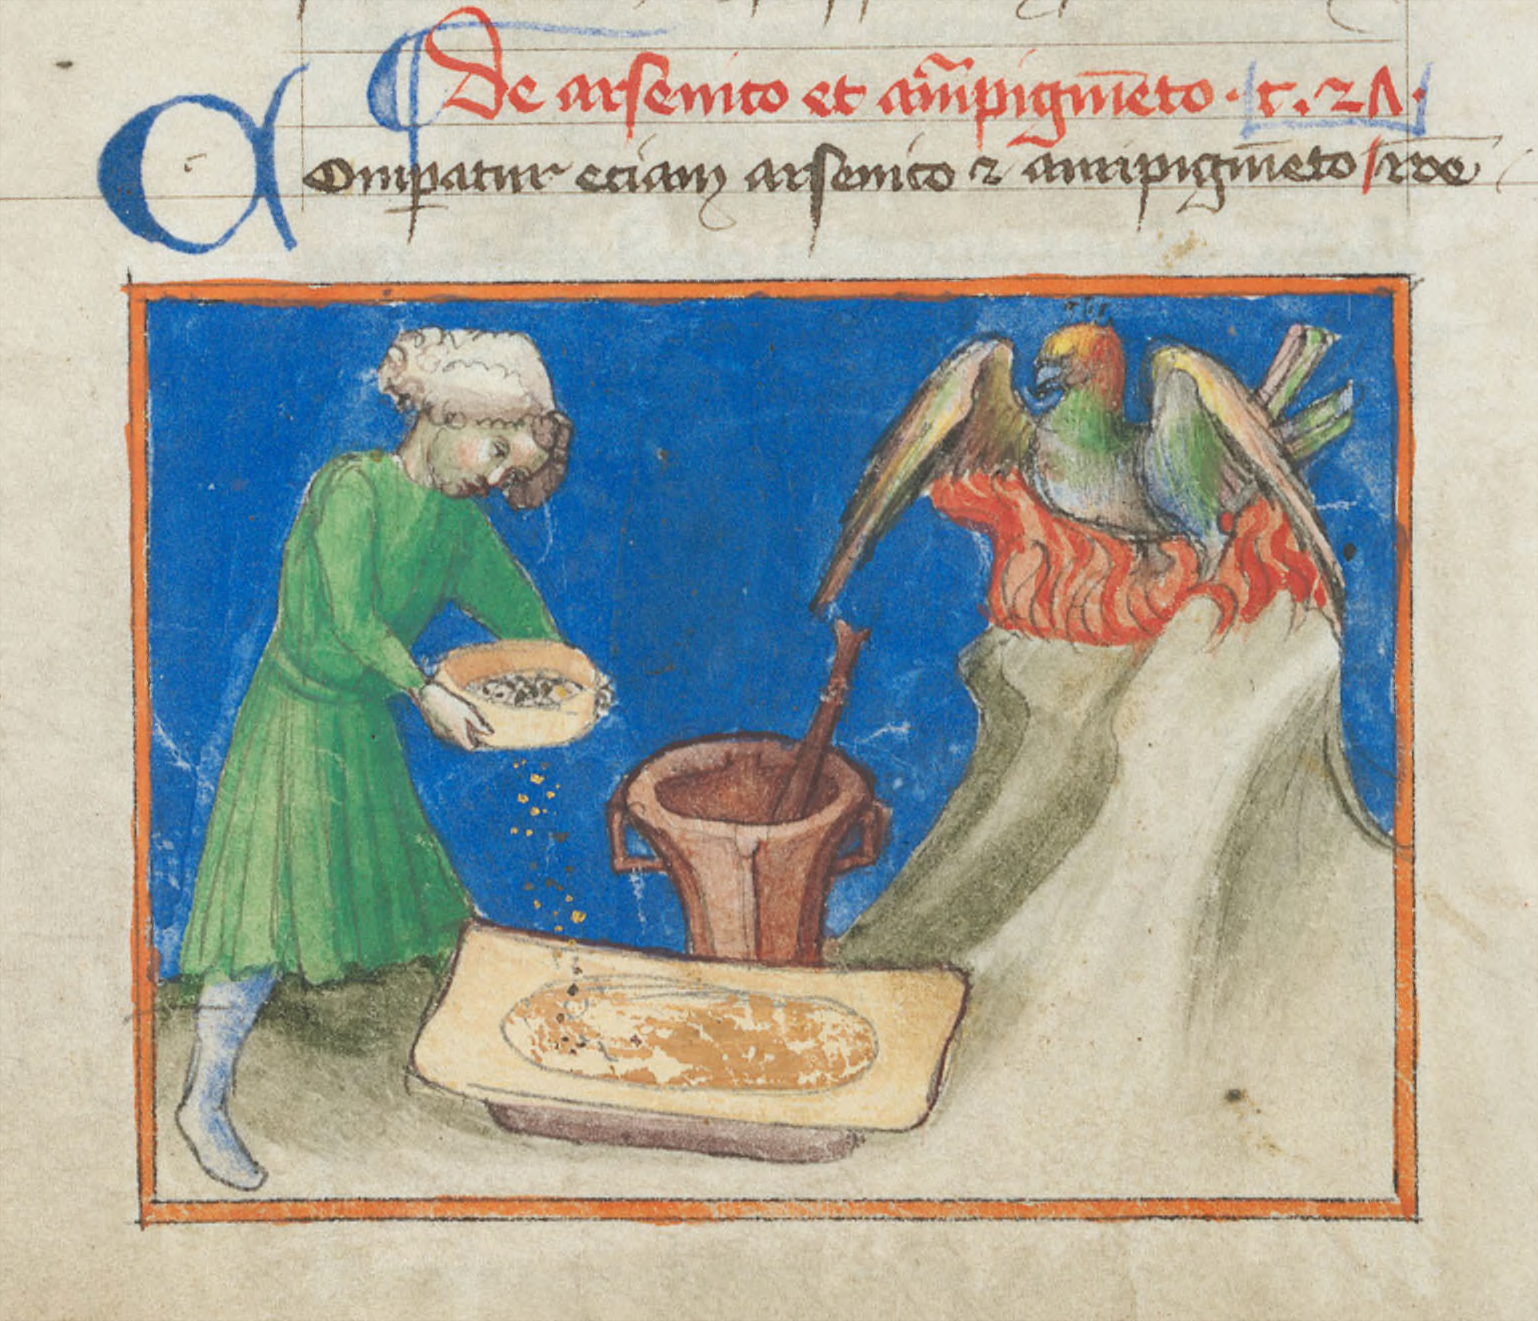 De arsenito et aūīpigm̄eto · c. 2Λ ·
Comꝑatur eciam arsenico ⁊ auripigm̄eto